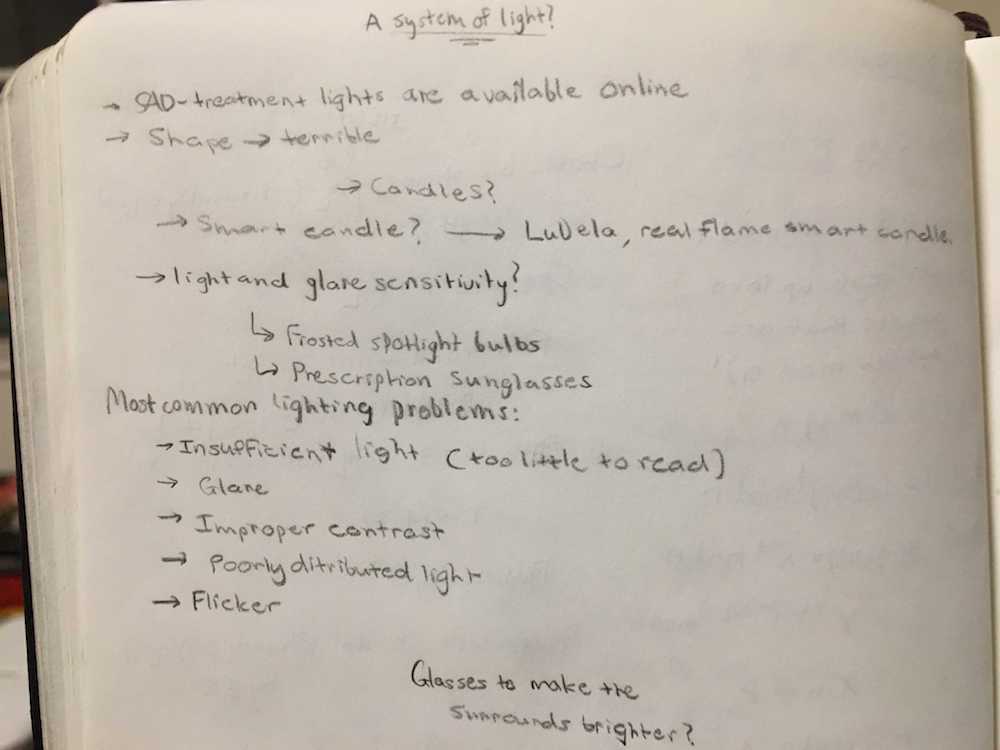 A system of light?
→ SAD-treatment lights are available online
→ Shape → terrible
→ Candles?
→ Smart candle? → LuDela, real flame smart candle.
→ light and glare sensitivity?
↳ Frosted spotlight bulbs
↳ Prescription sunglasses
Most common lighting problems:
→ Insufficient light (too little to read)
→ Glare
→ Improper contrast
→ Poorly ditributed light
→ Flicker
Glasses to make the
surrounds brighter?